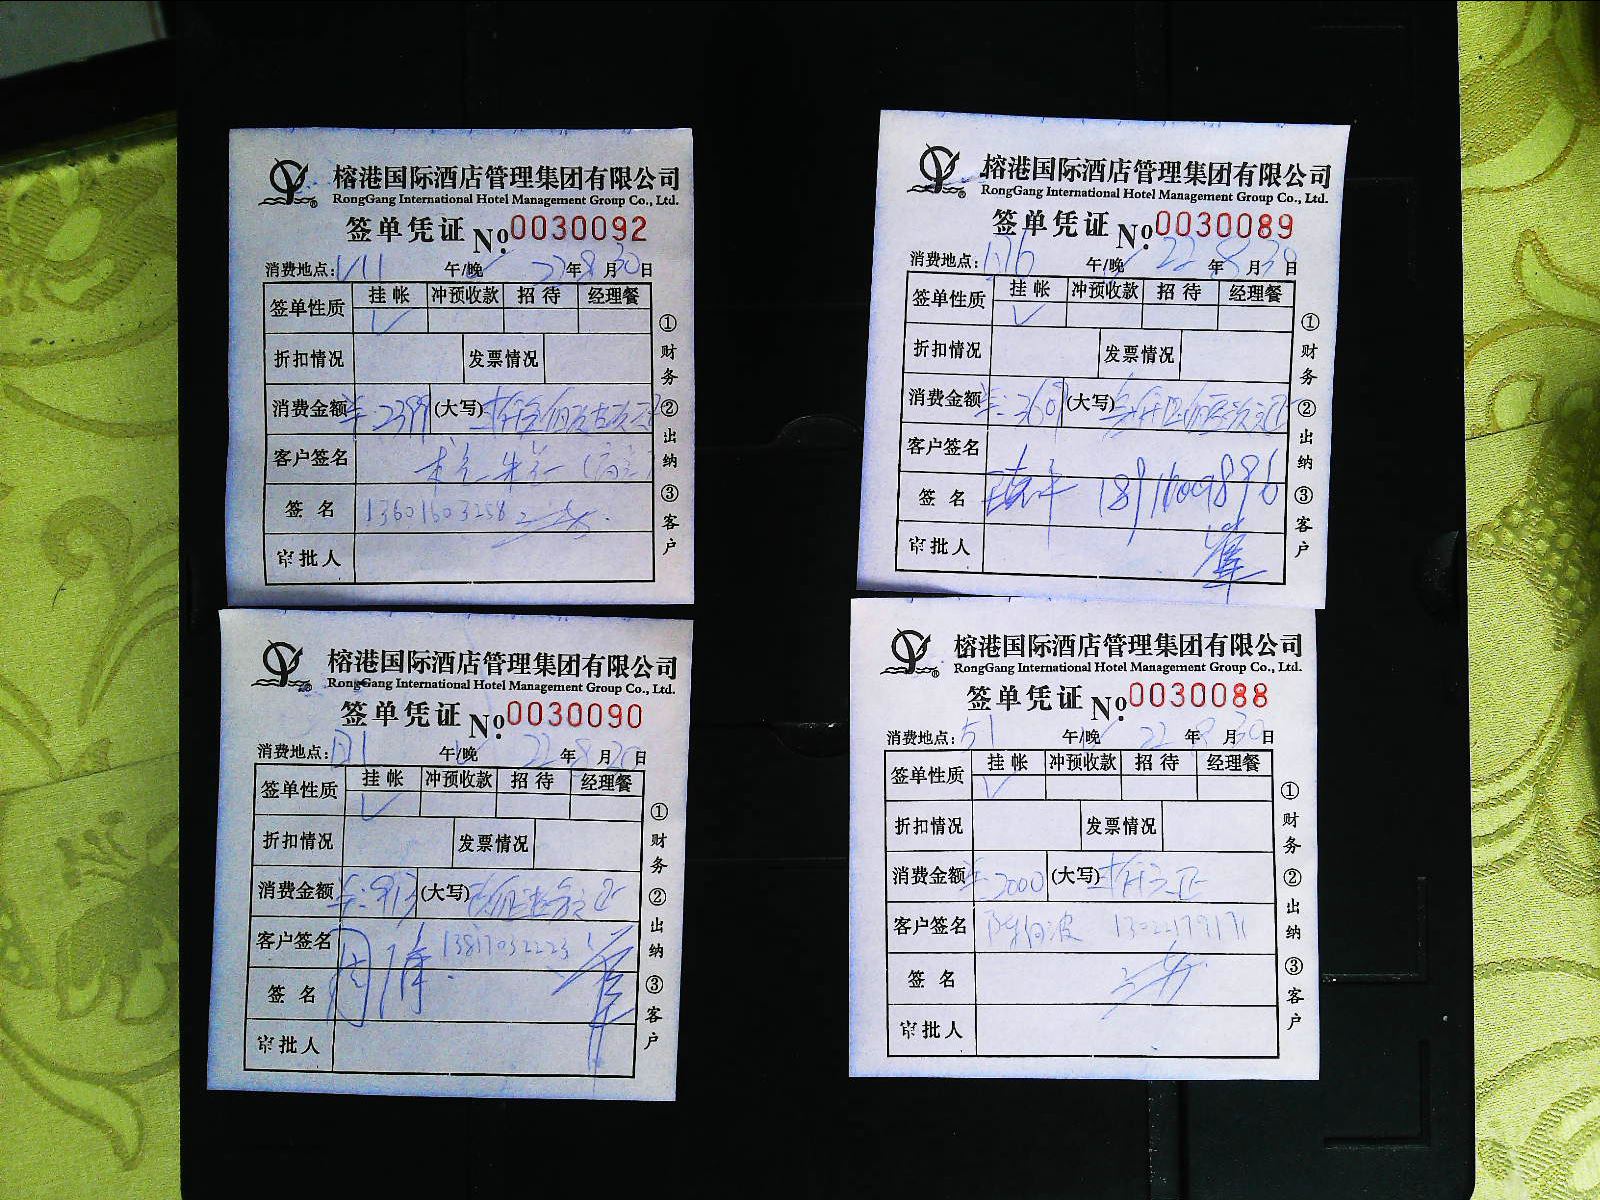 榕港国际酒店管理集团有限公司
RongGang International Hotel Management Group Co., Ltd.
签单凭证 №0030092
消费地点: 午/晚 22年8月30日
签单性质 挂帐 冲预收款 招待 经理餐
✓
折扣情况 发票情况
消费金额 2399 (大写)
客户签名
签名 13601603258
审批人
①财务 ②出纳 ③客户
榕港国际酒店管理集团有限公司
RongGang International Hotel Management Group Co., Ltd.
签单凭证 №0030089
消费地点: 午/晚 22年8月30日
签单性质 挂帐 冲预收款 招待 经理餐
✓
折扣情况 发票情况
消费金额 (大写)
客户签名
签名
审批人
①财务 ②出纳 ③客户
榕港国际酒店管理集团有限公司
RongGang International Hotel Management Group Co., Ltd.
签单凭证 №0030090
消费地点: 午/晚 22年8月 日
签单性质 挂帐 冲预收款 招待 经理餐
✓
折扣情况 发票情况
消费金额 913 (大写)
客户签名 13817032223
签名
审批人
①财务 ②出纳 ③客户
榕港国际酒店管理集团有限公司
RongGang International Hotel Management Group Co., Ltd.
签单凭证 №0030088
消费地点: 51 午/晚 22年8月30日
签单性质 挂帐 冲预收款 招待 经理餐
✓
折扣情况 发票情况
消费金额 2000 (大写)
客户签名
签名
审批人
①财务 ②出纳 ③客户